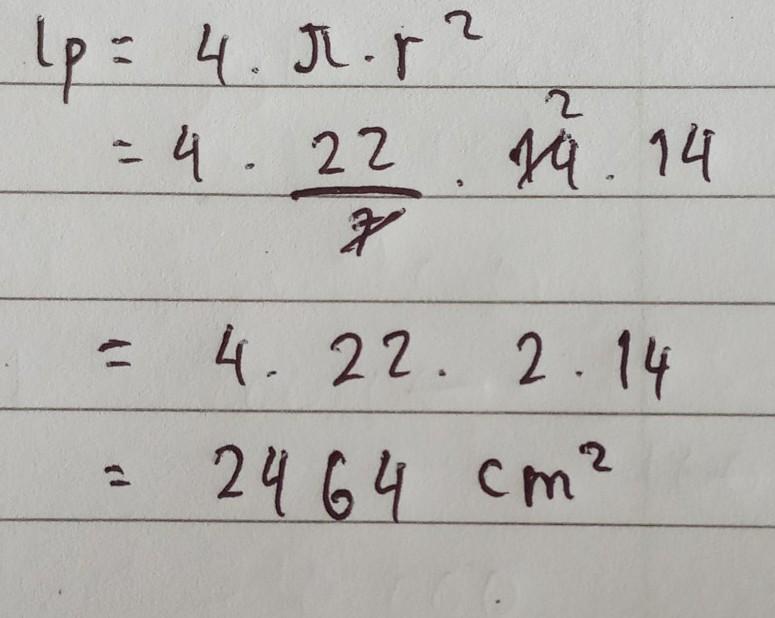 lp = 4 . π . r²
= 4 . 22/7 . 14 2 . 14
= 4 . 22 . 2 . 14
= 2464 cm²